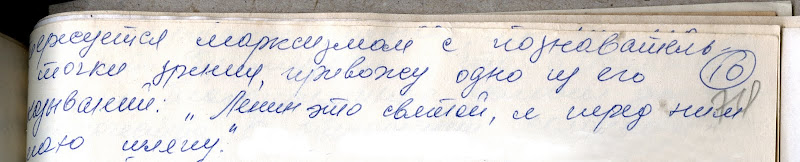 ересуется марксизмом с познаватель-
точки зрения, привожу одно из его 10
азываний: „Ленин это святой, я перед ним
маю шляпу."